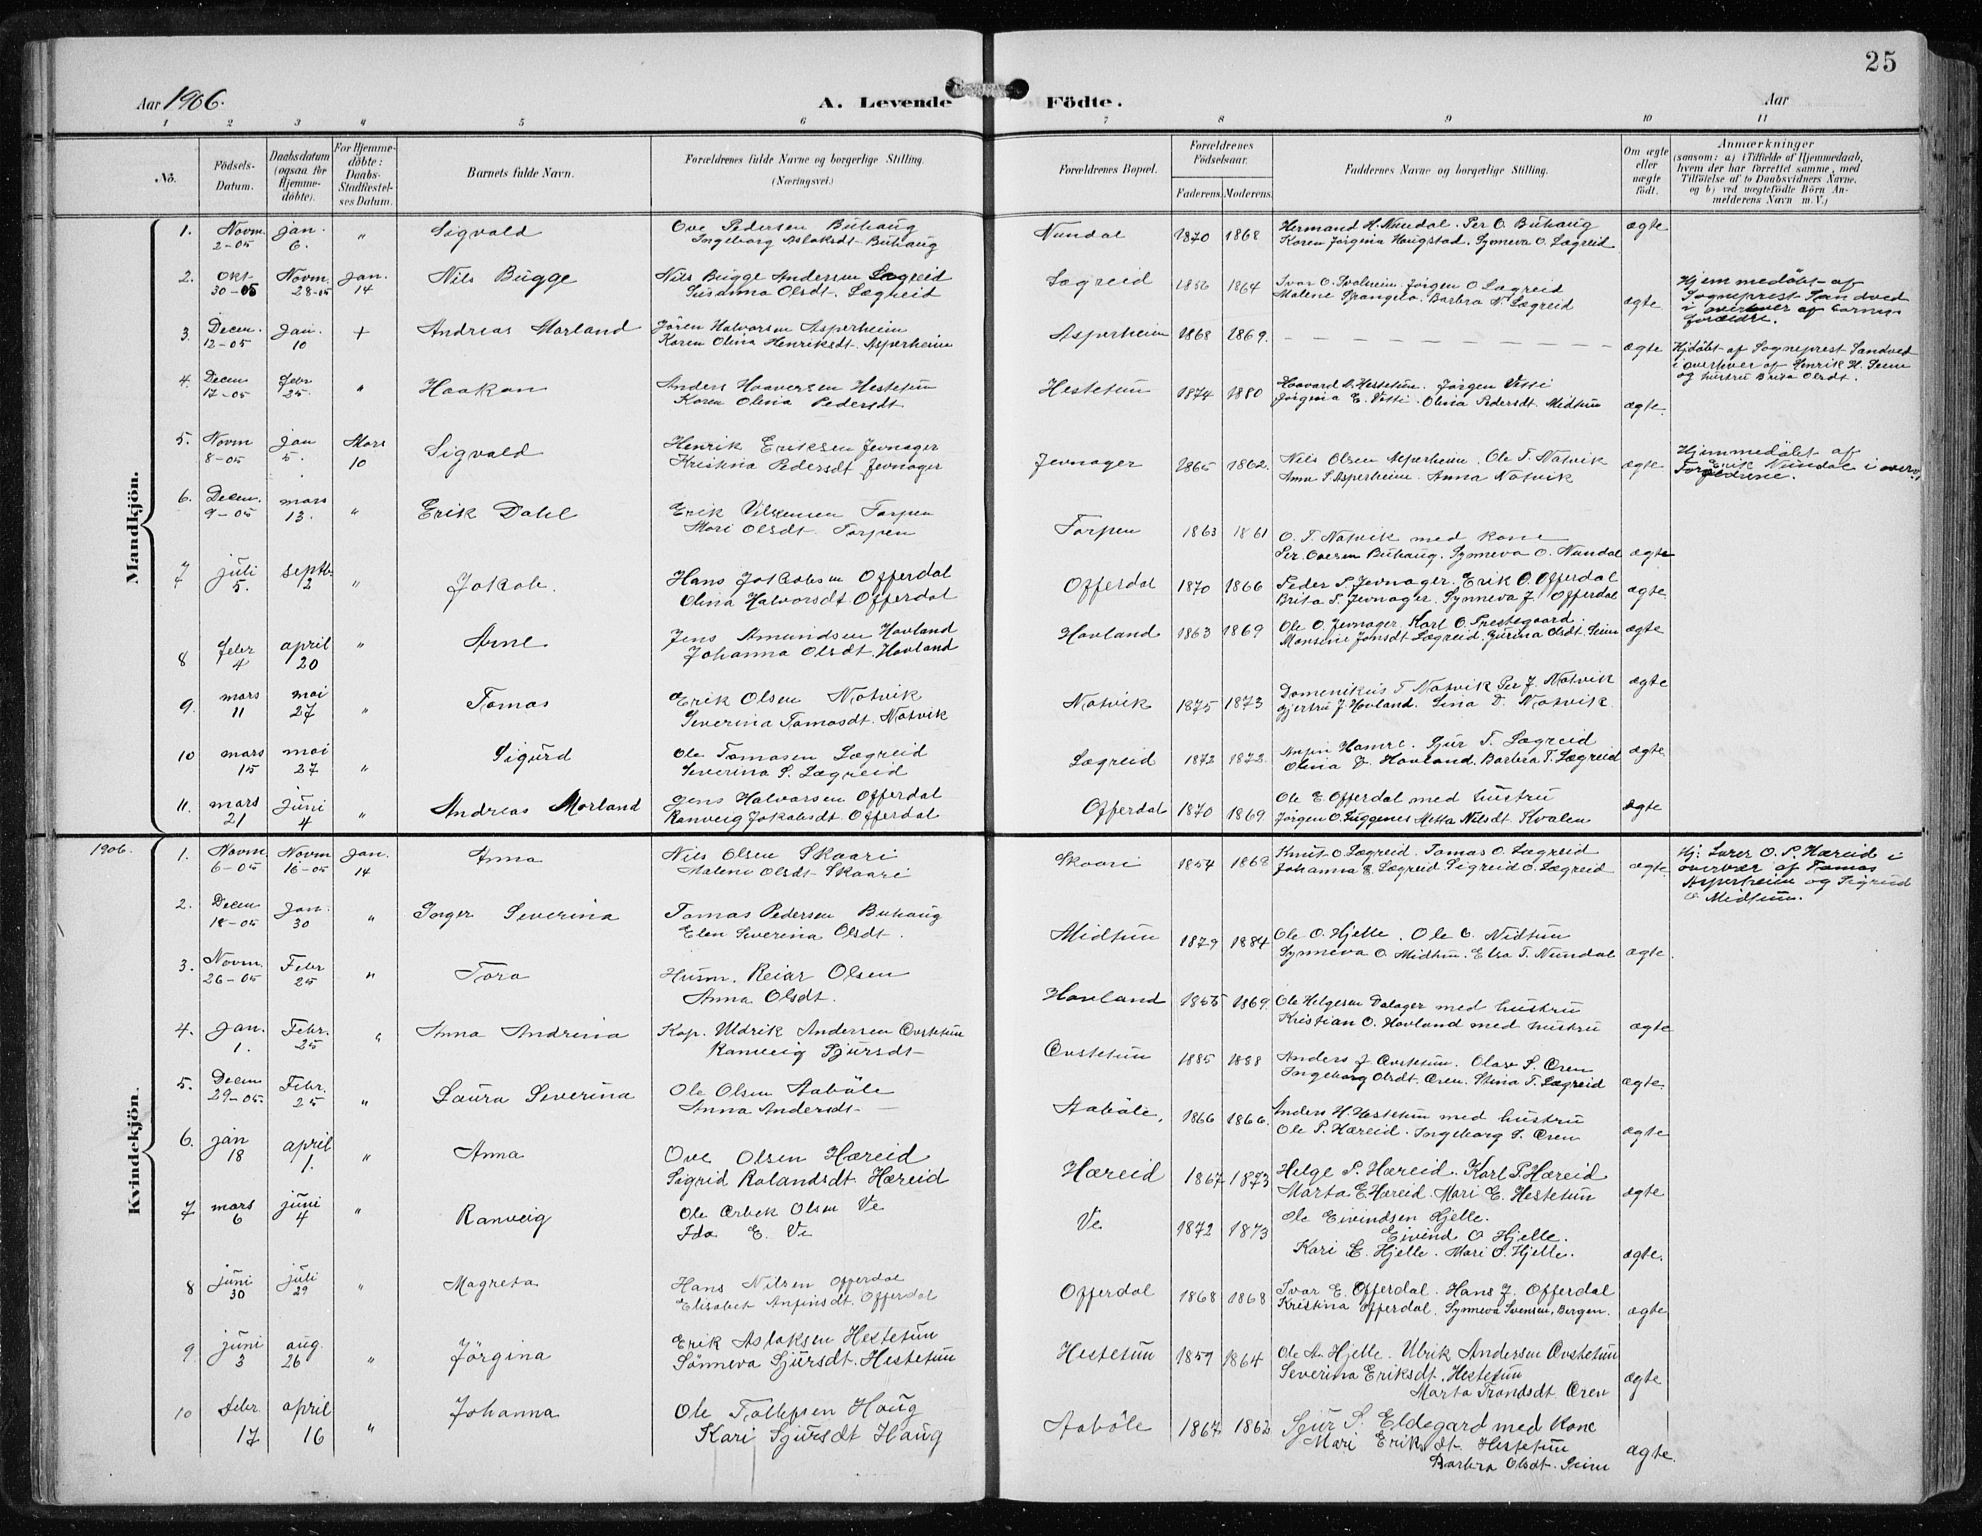 25
Aar 1906.
A. Levende Födte.
Aar
1 2 3 4 5 6 7 8 9 10 11
No.
Födsels-Datum.
Daabsdatum (ogsaa for Hjemmedöbte).
For Hjemmedöbte: Daabs-Stadfæstelses Datum.
Barnets fulde Navn.
Forældrenes fulde Navne og borgerlige Stilling.
(Næringsvei.)
Forældrenes Bopæl.
Forældrenes Födselsaar.
Faderens. Moderens.
Faddernes Navne og borgerlige Stilling.
Om ægte eller uægte födt.
Anmærkninger
(saasom: a) i Tilfælde af Hjemmedaab,
hvem der har forrettet samme, med
Tilföielse af to Daabsvidners Navne,
og b) ved uægtefödte Börn An-
melderens Navn m. V.)
Mandkjön.
1. Novm. 2-05 Jan. 6. " Sigvald
Ove Pedersen Buhaug
Ingeborg Aslaksdt. Buhaug
Nundal 1870 1868
Hermand H. Nundal. Per O. Buhaug
Karen Jörgina Haugstad. Synneva O. Lægreid
ægte
2. Okt. 30-05 Novm. 28-05 Jan. 14 Nils Bugge
Nils Bugge Andersen Lægreid
Susanna Olsdt. Lægreid
Lægreid 1864
Ivar O. Jörgen O. Lægreid
Malene Barbra N. Lægreid
ægte
Hjemmedöbt af
Sogneprest Sandved
i overvær af barnets
forældre.
3. Decen. 12-05 Jan. 10 + Andreas Morland
Jören Halvorsen Asperheim
Karen Olina Henriksdt. Asperheim
Asperheim 1868 1869.
ægte
Hjdöbt af Sogneprest Sandved
i overvær af Henrik H. Seim
og hustru Brita Olsdt.
4. Decen 17-05 Febr 25. " Haakon
Anders Haaversen Hestetun
Karen Olina Pedersdt
Hestetun 1874 1880
Haavard A. Hestetun. Jörgen Vetti
Jörgina E. Vetti. Olina Pedersdt Midtun
ægte.
5. Novm 8-05 Jan 5. Mars 10 Sigvald
Henrik Eriksen Jevnager
Kristina Pedersdt Jevnager
Jevnager 1865 1862.
Nils Olsen Asperheim. Ole T. Natvik
Anna S. Asperheim. Anna Natvik
ægte
Hjemmedöbt af
Erik Nundal i overv.
Forældrene.
6. Decem. 9-05 mars 13. " Erik Dahl
Erik Torpen
Mari Olsdt Torpen
Torpen 1863 1861
O. T. Natvik med kone
Per Ovesen Buhaug. Synneva O. Nundal
ægte
7 juli 5. septb. 2 " Jakob.
Hans Jakobsen Offerdal
Olina Halvorsdt Offerdal
Offerdal 1870 1866
Peder P. Jevnager. Erik O. Offerdal
Brita T. Jevnager. Synneva J. Offerdal
ægte
8 Febr 4 april 20 " Arne
Jens Amundsen Hovland
Johanna Olsdt. Hovland
Hovland 1863 1869
Ole O. Jevnager. Karl O. Prestegaard.
Jonsdt Lægreid. Jurina Olsdt. Seim
ægte
9. mars 11 mai 27 " Tomas
Erik Olsen Natvik
Severina Tomasdt. Natvik
Natvik 1875 1873
Domenikus T Natvik Per J. Natvik
Gjertru J. Hovland. Lina D. Natvik.
ægte
10 mars 15 mai 27 " Sigurd
Ole Tomasen Lægreid
Severina S. Lægreid
Lægreid 1872 1872.
Anfin Hamre. Sjur T. Lægreid
Olina D. Hovland. Barbra T. Lægreid
ægte
11. mars 21 Juni 4 " Andreas Morland
Jens Halvorsen Offerdal
Ranveig Jakobsdt. Offerdal
Offerdal 1870 1869
Ole E. Offerdal med hustru
Jörgen O. Metta Nilsdt. Kvalen
ægte
1906.
Kvindekjön.
1. Novm. 6-05 Novm 16-05 Jan. 14 Anna
Nils Olsen Skaari
Malene Olsdt Skaari
Skaari 1854 1862
Knut O. Lægreid. Tomas O. Lægreid
Johanna E. Lægreid Sigreid O. Lægreid
ægte.
Hj: Lærer O. P. Hæreid i
overvær af Tomas
Asperheim og Sigrud
O Midtun.
2. Decem 18-05 Jan. 30 " Inger Severina
Tomas Pedersen Buhaug
Elen Severina Olsdt.
Midtun 1879 1884
Ole O. Hjelle. Ole O. Midtun
Synneva O. Midtun. Elsa T. Nundal
ægte.
3. Novm. 26-05 Febr 25 " Tora
Husm. Reiar Olsen
Anna Olsdt.
Hovland 1869.
Ole Helgesen Dalager med hustru
Kristian O. Hovland med hustru
ægte
4. Jan. 1. Febr. 25 " Anna Andrina
Kap. Uldrik Andersen Ovstetun
Ranveig Sjursdt
Ovstetun 1885 1888
Anders J Ovstetun. Olav S. Øren
Ingeborg Olsdt. Øren. Stina T. Lægreid
ægte.
5. Decem 29-05. Febr. 25 " Laura Severina
Ole Olsen Aaböle
Anna Andersdt
Aaböle, 1866 1866.
Anders H. Hestetun med hustru
Ole P. Hæreid. Ingeborg S. Øren
ægte
6. jan 18 april 1. " Anna
Ove Olsen Hæreid
Sigrid Rolandsdt. Hæreid
Hæreid 1867 1873
Helge P. Hæreid. Karl P. Hæreid
Marta E. Hæreid. Mari E. Hestetun
ægte
7 mars 6 juni 4 " Ranveig
Ole Olsen Ve
Ida E. Ve
Ve 1872 1873
Ole Eivindsen Hjelle.
Eivind O Hjelle.
Kari E. Hjelle. Mari O. Hjelle.
ægte.
8 juni 30 juli 29 " Magreta
Hans Nilsen Offerdal
Elisabet Anfinsdt. Offerdal
Offerdal 1868 1868
Ivar E. Offerdal. Hans J. Offerdal
Kristina Offerdal, Synneva Svensen, Bergen.
ægte
9 juni 3 aug. 26 " Jörgina
Erik Aslaksen Hestetun
Sönneva Sjursdt. Hestetun
Hestetun 1859 1864
Ole A. Hjelle. Ulrik Andersen Ovstetun
Severina Eriksdt. Hestetun
Marta Trondsdt. Øren
ægte
10 Febr. 17 april 16 " Johanna
Ole Tollefsen Haug
Kari Sjursdt Haug
Aaböle 1867 1862
Sjur S. Eldegard med kone
Mari Eriksdt Hestetun
Barbra Olsdt. Seim
ægte.